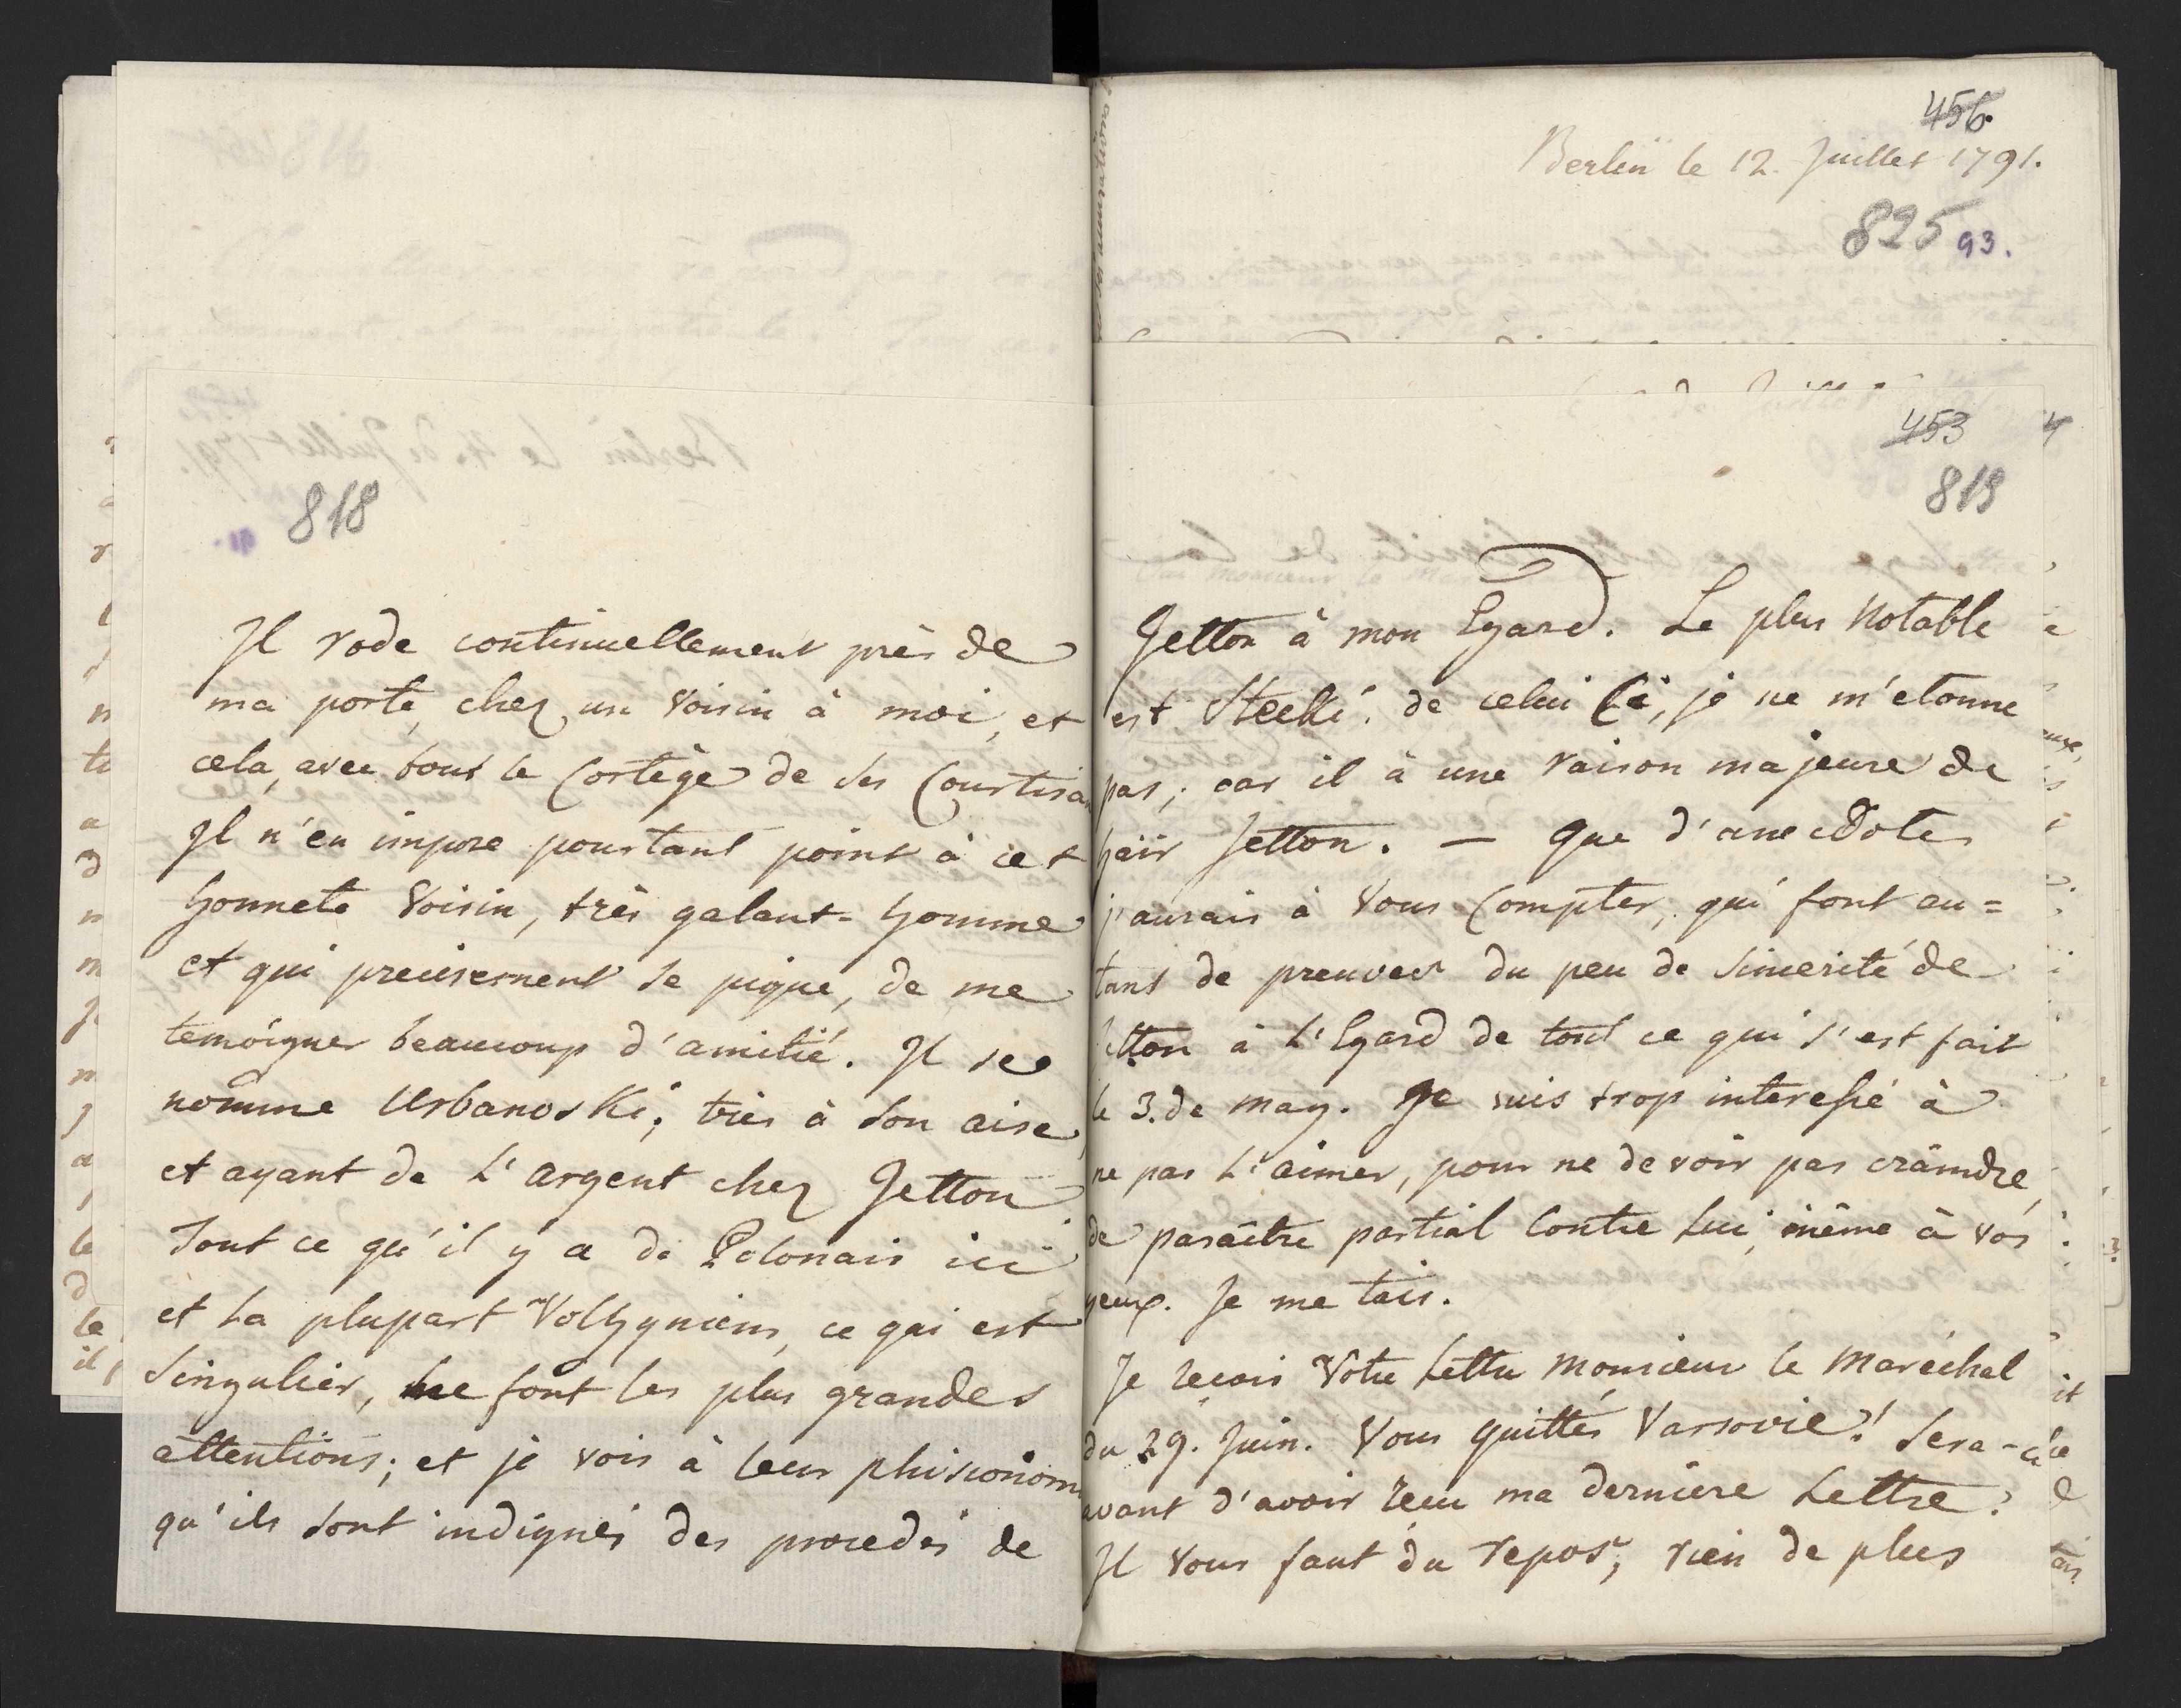 818
Jl rode continuellement près de
ma porte, chez un Voisin à moi, et
cela, avec tout le Cortège de ses Courtisa
Jl n'en impose pourtant point à cet
honnete Voisin, très galant-homme
et qui precisement se pique, de me
temoigner beaucoup d'amitié. Jl se
nomme Urbanoski; très à son aise,
et ayant de L'argent chez Jetton
Tout ce qu'il y a de Polonais ici
et La plupart Volhyniens, ce qui est
Singulier, me font les plus grandes
attentions; et je vois à leur phisionom
qu'ils sont indignés des procedés de
456.
Berlin le 12. Juillet 1791.
825 93.
453
819
Jetton à mon Egard. Le plus Notable
est Stecki. de celui Ci, je ne m'etonne
pas; car il à une raison majeure de
haïr Jetton. — Que d'anecdotes
j'aurais à Vous Compter, qui font au=
tant de preuves du peu de Sincerité de
etton à L'Egard de tout ce qui s'est fait
le 3. de may. Je suis trop interessé à
ne pas L'aimer, pour ne devoir pas craindre,
de paraître partial Contre Lui, même à vos
yeux. Je me tais.
Je reçois Votre Lettre Monsieur le Maréchal
du 29. Juin. Vous quittés Varsovie! Sera-ce
avant d'avoir recu ma derniere Lettre?
Jl Vous faut du repos; rien de plus